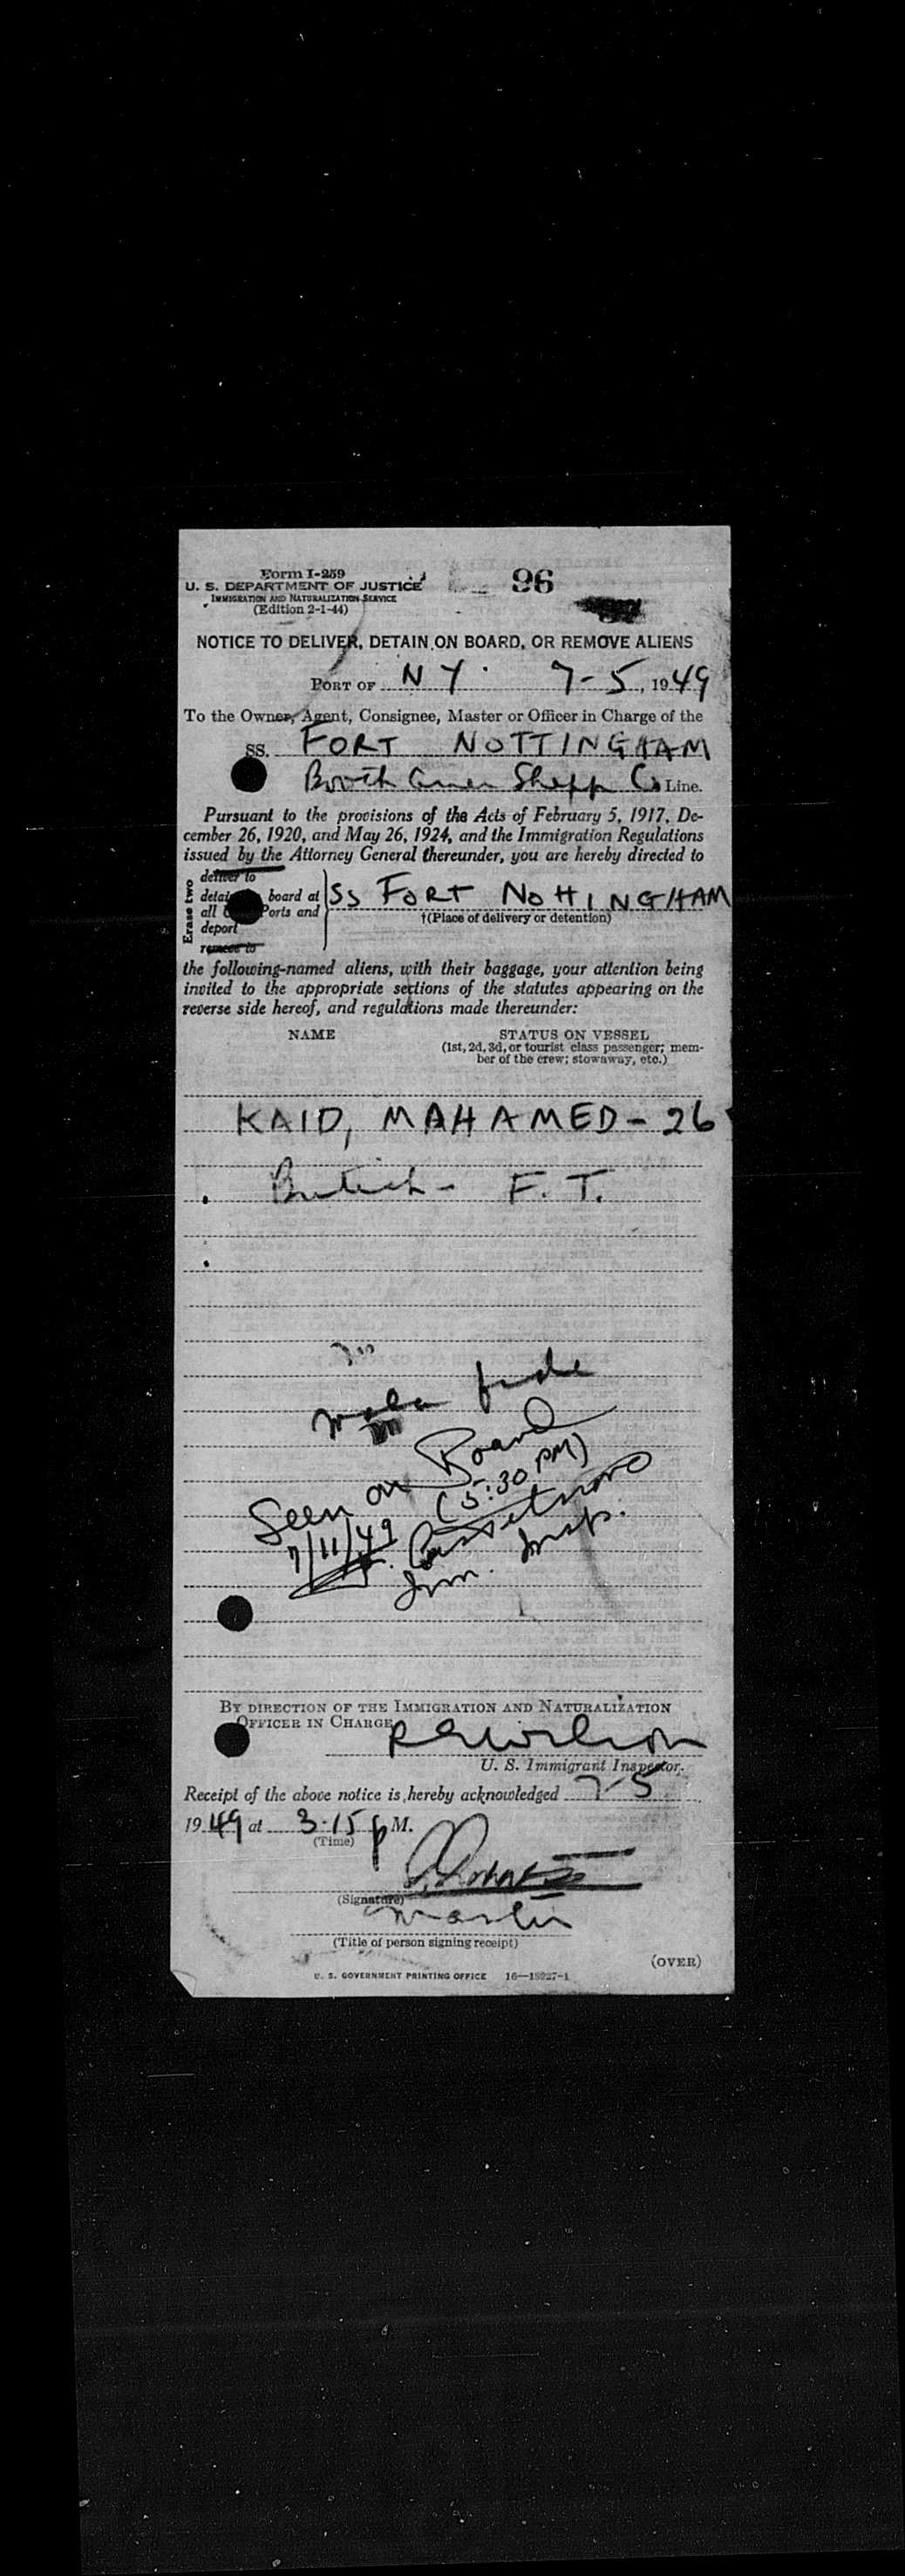 Form I-259
96
U. S. DEPARTMENT OF JUSTICE
IMMIGRATION AND NATURALIZATION SERVICE
(Edition 2-1-44)
NOTICE TO DELIVER, DETAIN ON BOARD, OR REMOVE ALIENS
PORT OF NY. 7-5, 1949
To the Owner, Agent, Consignee, Master or Officer in Charge of the
SS. FORT NOTTINGHAM
Booth Amer Shipp Co Line.
Pursuant to the provisions of the Acts of February 5, 1917, De-
cember 26, 1920, and May 26, 1924, and the Immigration Regulations
issued by the Attorney General thereunder, you are hereby directed to
Erase two
deliver to
detain board at
all Ports and
deport
remove to
SS FORT NOTTINGHAM
†(Place of delivery or detention)
the following-named aliens, with their baggage, your attention being
invited to the appropriate sections of the statutes appearing on the
reverse side hereof, and regulations made thereunder:
NAME STATUS ON VESSEL
(1st, 2d, 3d, or tourist class passenger; mem-
ber of the crew; stowaway, etc.)
KAID, MAHAMED - 26
British - F. T.
mala fide
Seen on Board
7/11/49 (5:30 PM)
Imm. Insp.
BY DIRECTION OF THE IMMIGRATION AND NATURALIZATION
OFFICER IN CHARGE
U. S. Immigrant Inspector.
Receipt of the above notice is hereby acknowledged 7-5
1949 at 3.15 p M.
(Time)
(Signature)
Master
(Title of person signing receipt)
(OVER)
U. S. GOVERNMENT PRINTING OFFICE 16—18227-1